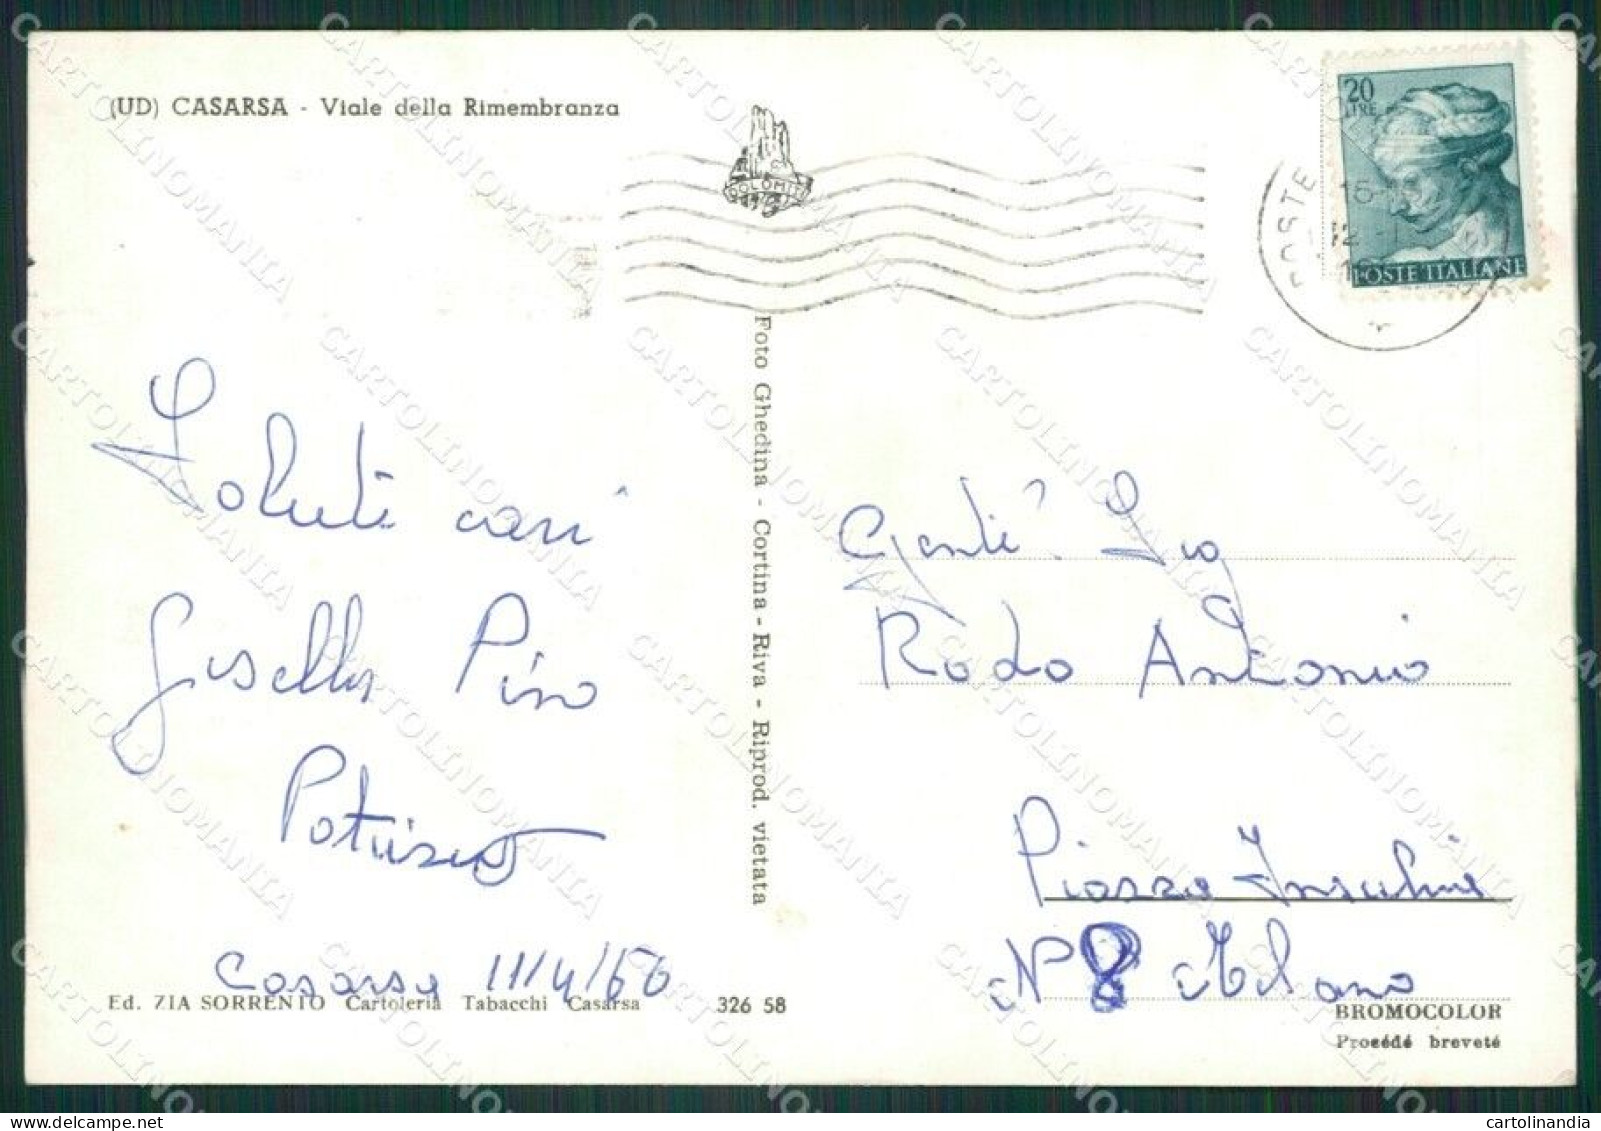 (UD) CASARSA - Viale della Rimembranza
DOLOMITI
20
LIRE
POSTE ITALIANE
POSTE
Saluti cari
Gisella Pino
Casarsa 11/4/66
Foto Ghedina - Cortina - Riva - Riprod. vietata
Gent. Sig
Rodo Antonio
Piazza
N 8 Milano
Ed. ZIA SORRENTO Cartoleria Tabacchi Casarsa
326 58
BROMOCOLOR
Procédé breveté
CARTOLINOMANIA
cartolinandia